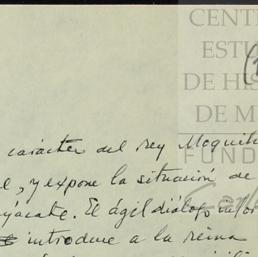 CENT
ESTU
DE HIS
DE M
FUND
carácter del rey Moquihui
y expone la situación de
El ágil diálogo infor
introduce a la reina